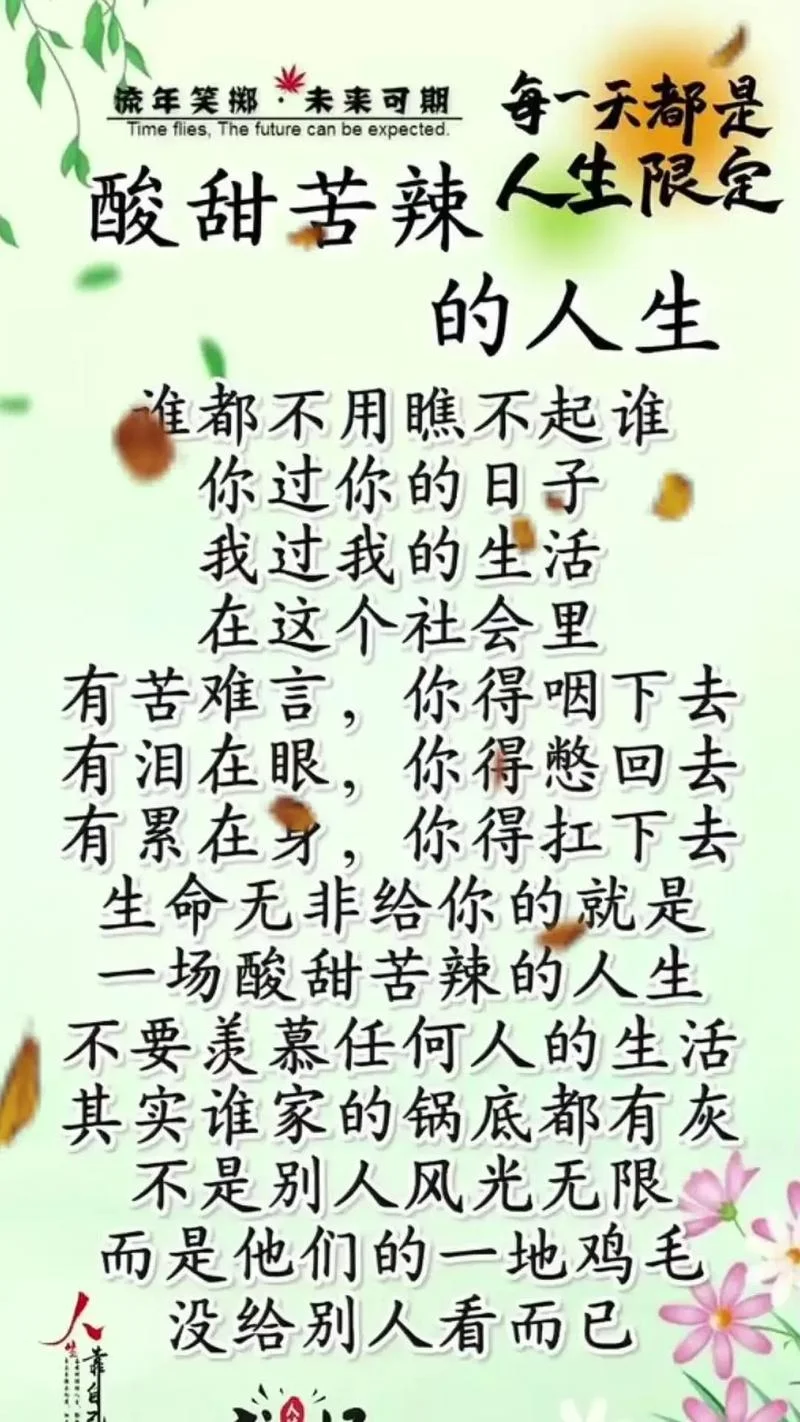 流年笑掷·未来可期
Time flies, The future can be expected.
每一天都是
人生限定
酸甜苦辣
的人生
谁都不用瞧不起谁
你过你的日子
我过我的生活
在这个社会里
有苦难言，你得咽下去
有泪在眼，你得憋回去
有累在身，你得扛下去
生命无非给你的就是
一场酸甜苦辣的人生
不要羡慕任何人的生活
其实谁家的锅底都有灰
不是别人风光无限
而是他们的一地鸡毛
没给别人看而已
人生
靠自己